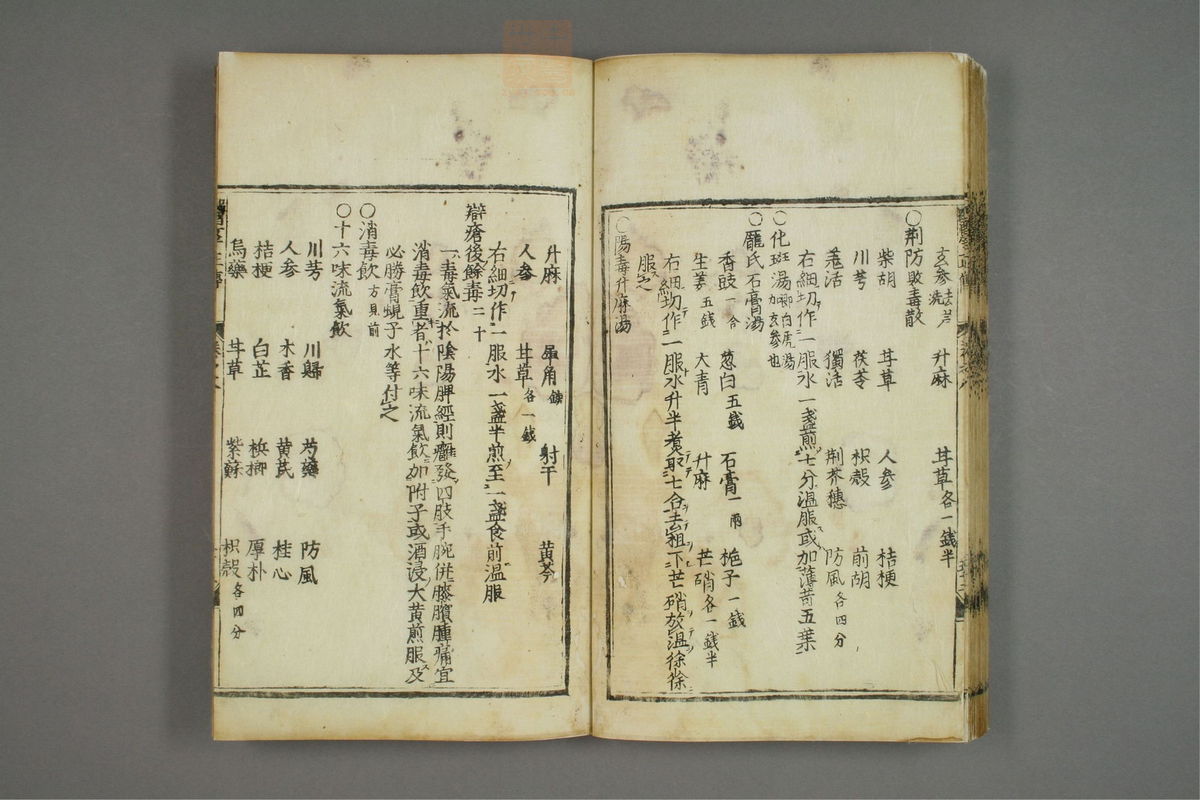 玄參 洗去芦 升麻 甘草 各一銭半
○荊防敗毒散
柴胡 甘草 人參 桔梗
川芎 茯苓 枳殻 前胡
羗活 獨活 荆芥穗 防風 各四分
右細切作一服水一盞煎七分温服或加薄苛五葉
○化斑湯 即白虎湯加玄參也
○龎氏石膏湯
香豉 一合 葱白 五銭 石膏 一兩 栀子 一銭
生姜 五銭 大青 升麻 芒硝 各一銭半
右細切作一服水升半煮取七合去粗下芒硝放温徐徐
服之
○陽毒升麻湯
升麻 犀角 鎊 射干 黄芩
人參 甘草 各一銭
右細切作一服水一盞半煎至一盞食前温服
辯瘡後餘毒二十
一毒氣流於陰陽脾經則癰發四肢手腕併膝臏腫痛宜
消毒飲重者十六味流氣飲加附子或酒浸大黄煎服及
必勝膏蜆子水等付之
○消毒飲 方見前
○十六味流氣飲
川芎 川歸 芍藥 防風
人參 木香 黄芪 桂心
桔梗 白芷 梹榔 厚朴
烏藥 甘草 紫蘇 枳殻 各四分